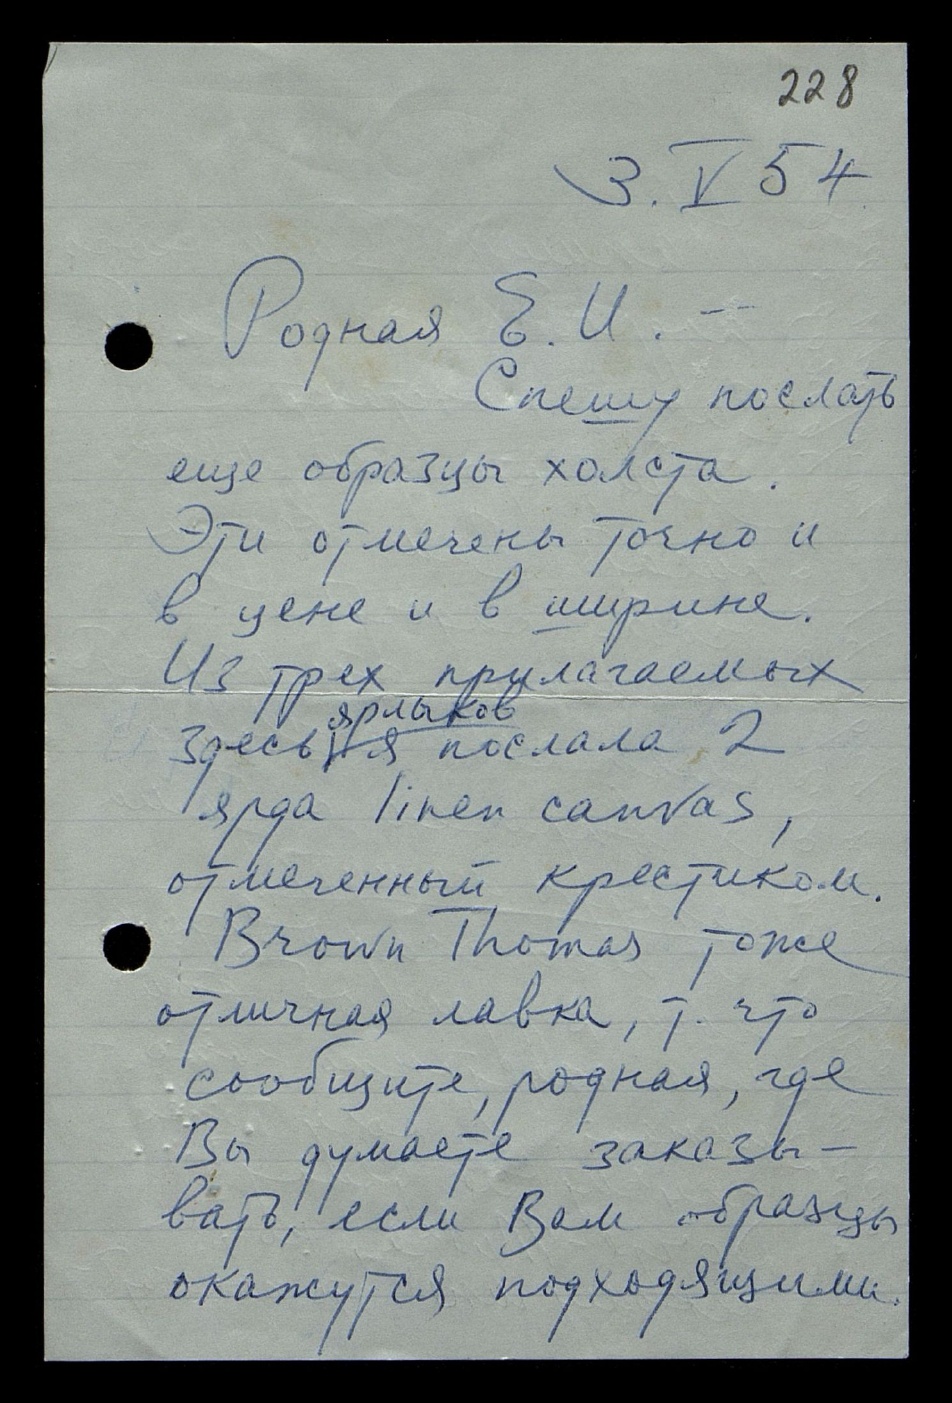 228
3.V 54
Родная Е. И. --
Спешу послать
еще образцы холста.
Эти отмечены точно и
в цене и в ширине.
Из трех прилагаемых
ярлыков
здесь я послала 2
ярда linen canvas,
отмеченный крестиком.
Brown Thomas тоже
отличная лавка, т. что
сообщите, родная, где
Вы думаете заказы-
вать, если Вам образцы
окажутся подходящими.